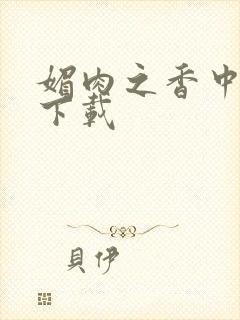 媚肉之香中
下載
貝伊